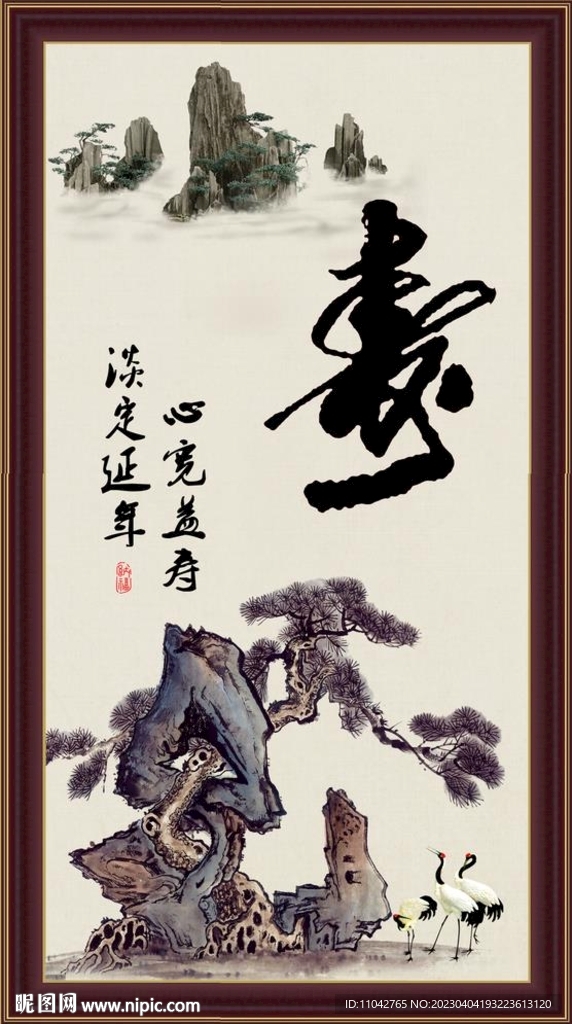 壽
心宽益寿
淡定延年
昵图网 www.nipic.com
ID:11042765 NO:20230404193223613120